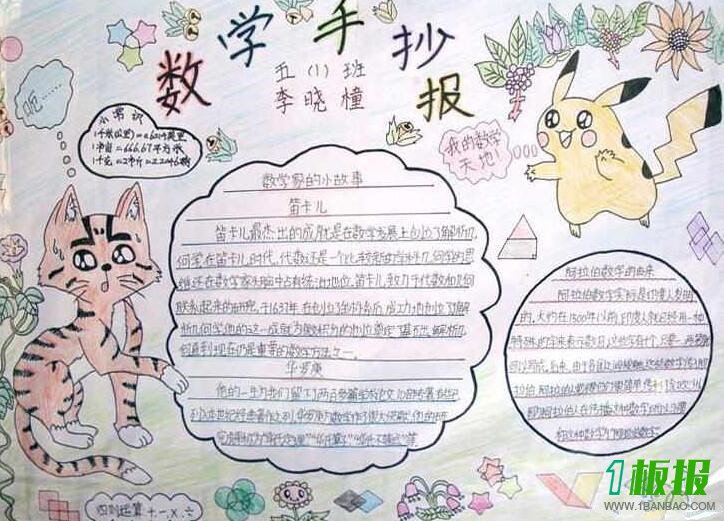 数学手抄报
五(1)班
李晓橦
呃……
小常识
1千米(公里)=0.6214英里
1市亩=666.67平方米
1千克=2市斤=2.2046磅
我的数学
天地!
数学家的小故事
笛卡儿
笛卡儿最杰出的成就是在数学发展上创立了解析几
何学。在笛卡儿时代,代数还是一个比较新的学科,几何学的思
维还在数学家头脑中占有统治地位。笛卡儿致力于代数和几何
联系起来的研究,于1637年,在创立了坐标系后,成功地创立了解
析几何学。他的这一成就为微积分的创立奠定了基础。解析几
何直到现在仍是重要的数学方法之一。
华罗庚
他的一生为我们留下了
阿拉伯数字的由来
阿拉伯数字实际是印度人发明
的,大约在1500年以前,印度人就已经用一种
特殊的字来表示数目,这些字有十个,只要一两笔就
可以写成。后来,
四则运算 +、-、×、÷
1板报
WWW.1BANBAO.COM